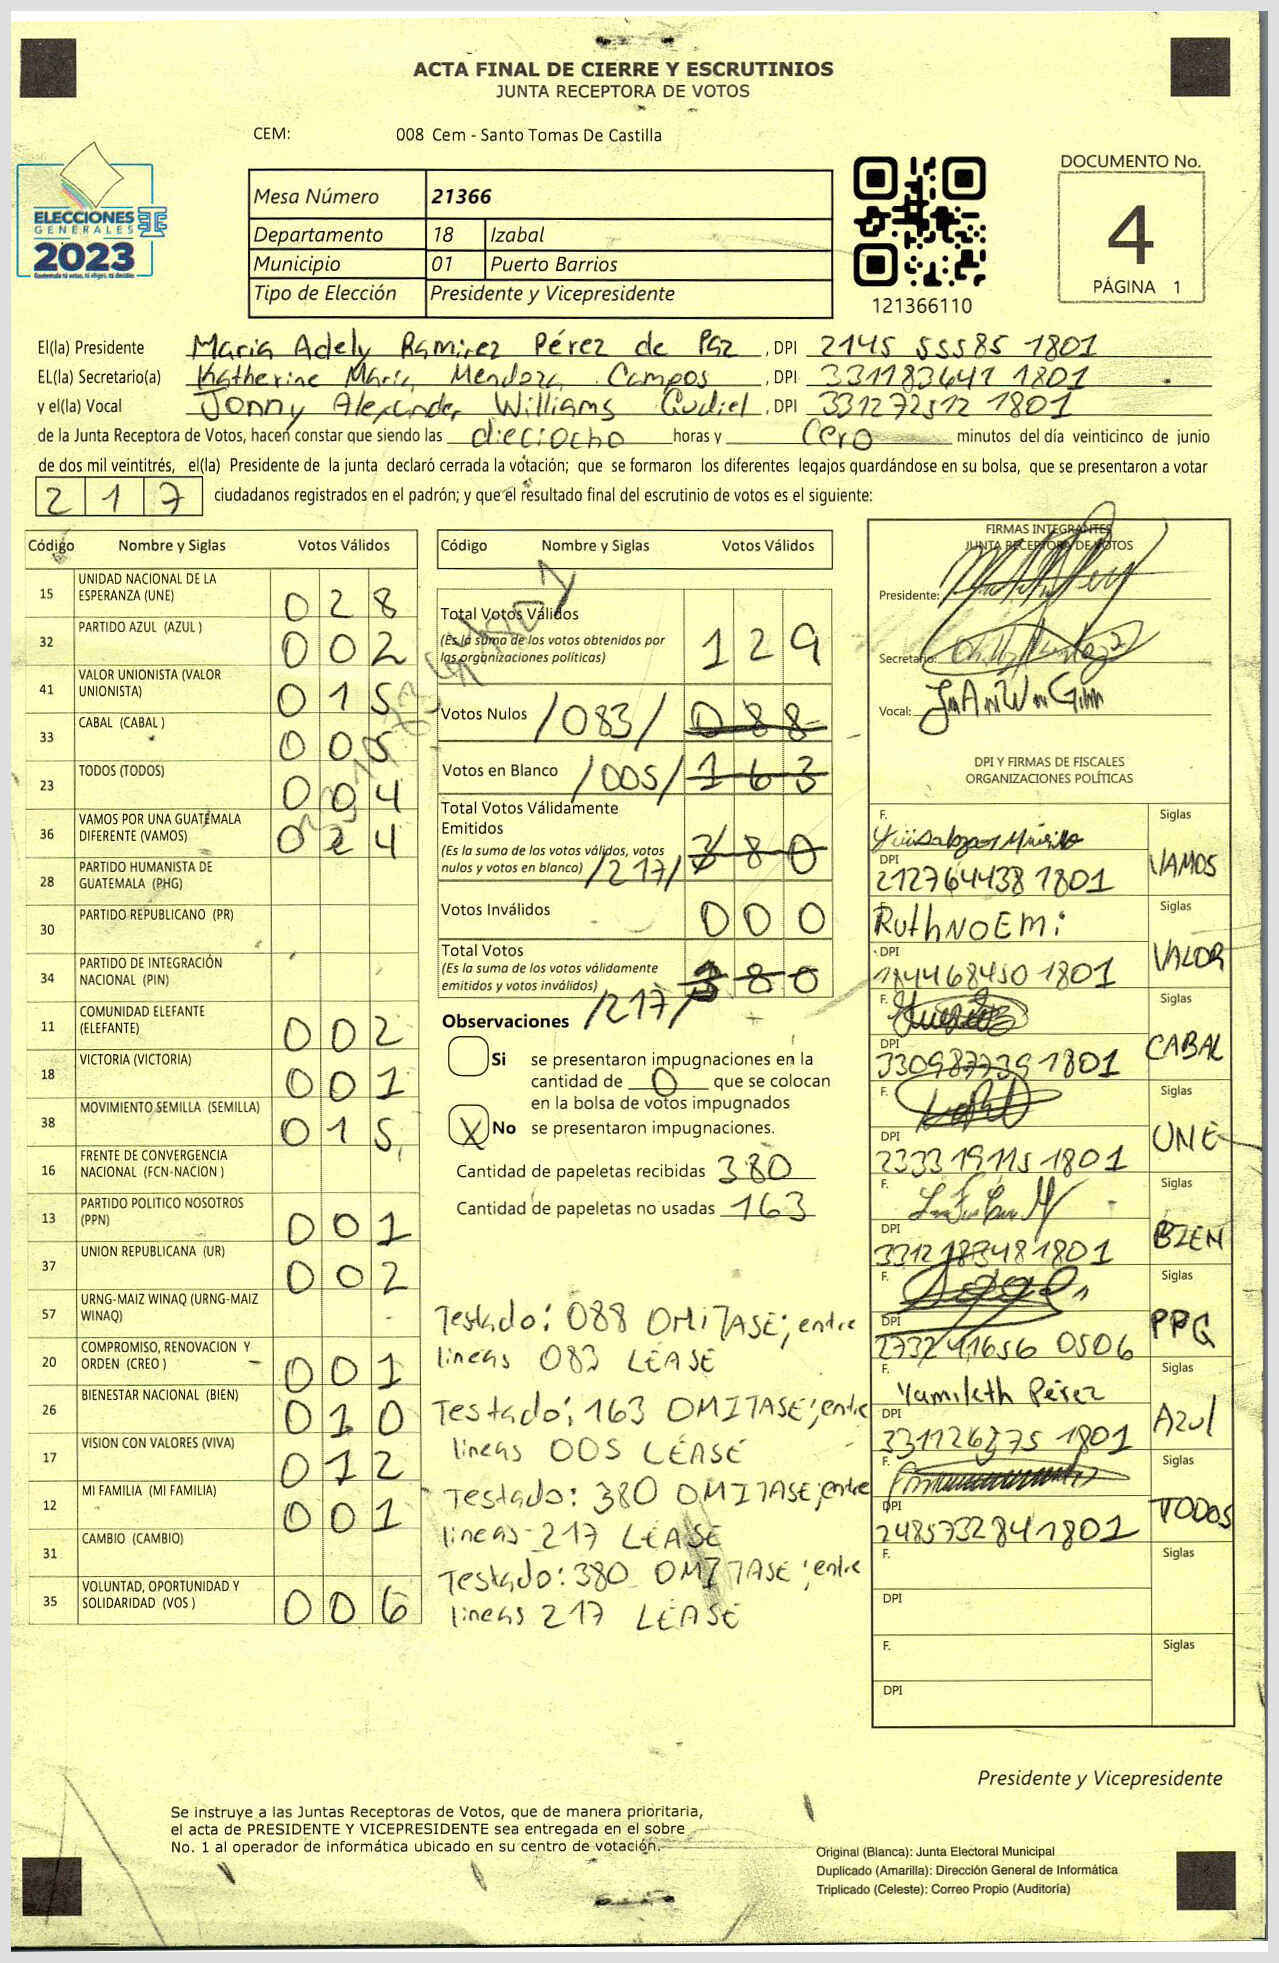 ACTA FINAL DE CIERRE Y ESCRUTINIOS
JUNTA RECEPTORA DE VOTOS
CEM: 008 Cem - Santo Tomas De Castilla
ELECCIONES
GENERALES
2023
Guatemala tú votas, tú eliges, tú decides
Mesa Número 21366
Departamento 18 Izabal
Municipio 01 Puerto Barrios
Tipo de Elección Presidente y Vicepresidente
121366110
DOCUMENTO No.
4
PÁGINA 1
El(la) Presidente Maria Adely Ramirez Pérez de Paz , DPI 2145 55585 1801
EL(la) Secretario(a) Katherine María Mendoza Campos , DPI 331183641 1801
y el(la) Vocal Jonny Alexander Williams Gudiel , DPI 331272512 1801
de la Junta Receptora de Votos, hacen constar que siendo las dieciocho horas y cero minutos del día veinticinco de junio
de dos mil veintitrés, el(la) Presidente de la junta declaró cerrada la votación; que se formaron los diferentes legajos guardándose en su bolsa, que se presentaron a votar
217 ciudadanos registrados en el padrón; y que el resultado final del escrutinio de votos es el siguiente:
Código Nombre y Siglas Votos Válidos
15 UNIDAD NACIONAL DE LA ESPERANZA (UNE) 028
32 PARTIDO AZUL (AZUL ) 002
41 VALOR UNIONISTA (VALOR UNIONISTA) 015
33 CABAL (CABAL ) 005
23 TODOS (TODOS) 004
36 VAMOS POR UNA GUATEMALA DIFERENTE (VAMOS) 024
28 PARTIDO HUMANISTA DE GUATEMALA (PHG)
30 PARTIDO REPUBLICANO (PR)
34 PARTIDO DE INTEGRACIÓN NACIONAL (PIN)
11 COMUNIDAD ELEFANTE (ELEFANTE) 002
18 VICTORIA (VICTORIA) 001
38 MOVIMIENTO SEMILLA (SEMILLA) 015
16 FRENTE DE CONVERGENCIA NACIONAL (FCN-NACION )
13 PARTIDO POLITICO NOSOTROS (PPN) 001
37 UNION REPUBLICANA (UR) 002
57 URNG-MAIZ WINAQ (URNG-MAIZ WINAQ)
20 COMPROMISO, RENOVACION Y ORDEN (CREO ) 001
26 BIENESTAR NACIONAL (BIEN) 010
17 VISION CON VALORES (VIVA) 012
12 MI FAMILIA (MI FAMILIA) 001
31 CAMBIO (CAMBIO)
35 VOLUNTAD, OPORTUNIDAD Y SOLIDARIDAD (VOS ) 006
Código Nombre y Siglas Votos Válidos
Total Votos Válidos 129
(Es la suma de los votos obtenidos por
las organizaciones politicas)
Votos Nulos /083/ 088
Votos en Blanco /005/ 163
Total Votos Válidamente
Emitidos
(Es la suma de los votos válidos, votos
nulos y votos en blanco) /217/ 380
Votos Inválidos 000
Total Votos
(Es la suma de los votos válidamente
emitidos y votos inválidos) 380
/217/
Observaciones
Si se presentaron impugnaciones en la
cantidad de 0 que se colocan
en la bolsa de votos impugnados
X No se presentaron impugnaciones.
Cantidad de papeletas recibidas 380
Cantidad de papeletas no usadas 163
Testado: 088 OMITASE; entre
lineas 083 LEASE
Testado: 163 OMITASE; entre
lineas 005 LEASE
Testado: 380 OMITASE; entre
lineas 217 LEASE
Testado: 380 OMITASE; entre
lineas 217 LEASE
FIRMAS INTEGRANTES
JUNTA RECEPTORA DE VOTOS
Presidente:
Secretario:
Vocal:
DPI Y FIRMAS DE FISCALES
ORGANIZACIONES POLÍTICAS
F. Siglas
DPI 212764438 1801 VAMOS
Ruth NOEMi Siglas
DPI 184468450 1801 VALOR
F. Siglas
DPI 330987739 1801 CABAL
F. Siglas
DPI 233319115 1801 UNE
F. Siglas
DPI 331218348 1801 BIEN
F. Siglas
DPI 273241656 0506 PPG
F. Yamileth Pérez Siglas
DPI 331126375 1801 Azul
F. Siglas
DPI 248573284 1801 TODOS
F. Siglas
DPI
F. Siglas
DPI
Presidente y Vicepresidente
Se instruye a las Juntas Receptoras de Votos, que de manera prioritaria,
el acta de PRESIDENTE Y VICEPRESIDENTE sea entregada en el sobre
No. 1 al operador de informática ubicado en su centro de votación.
Original (Blanca): Junta Electoral Municipal
Duplicado (Amarilla): Dirección General de Informática
Triplicado (Celeste): Correo Propio (Auditoría)